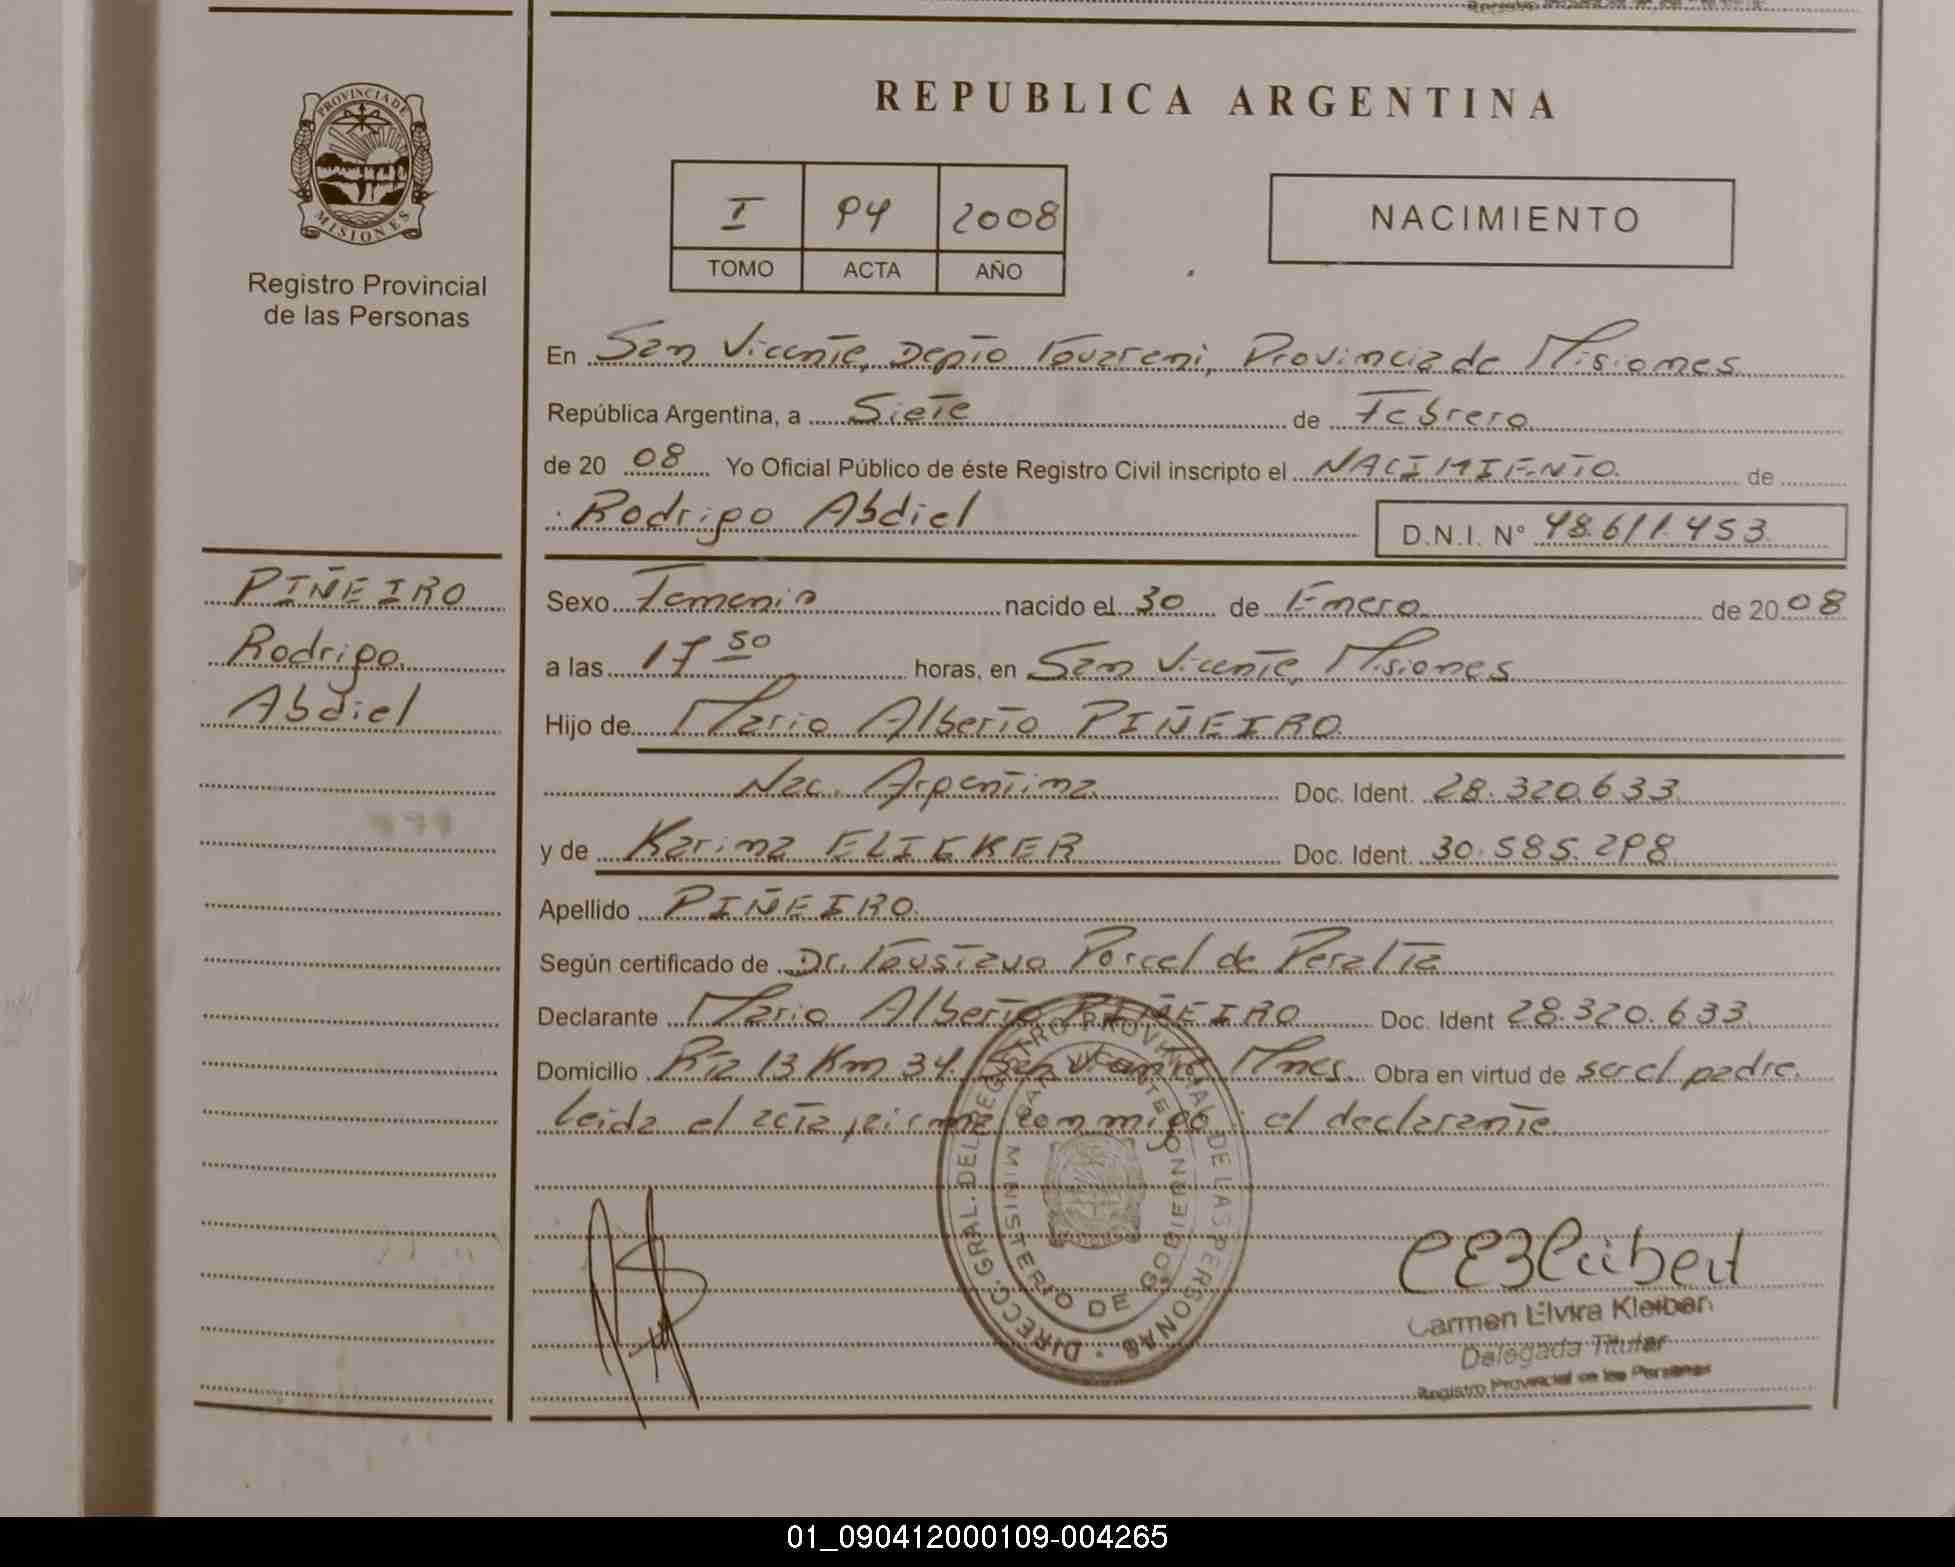 REPUBLICA ARGENTINA
PROVINCIA DE
MISIONES
Registro Provincial
de las Personas
I 94 2008
TOMO ACTA AÑO
NACIMIENTO
En San Vicente, Depto Guarani, Provincia de Misiones
República Argentina, a Siete de Febrero
de 20 08 Yo Oficial Público de éste Registro Civil inscripto el NACIMIENTO. de
Rodrigo Abdiel D.N.I. N° 48.611.453
PIÑEIRO
Rodrigo
Abdiel
Sexo Femenin nacido el 30 de Enero de 20 08
a las 17 50 horas, en San Vicente, Misiones
Hijo de Mario Alberto PIÑEIRO
Nac. Argentina Doc. Ident. 28.320.633
y de Karina ELICKER Doc. Ident. 30.585.298
Apellido PIÑEIRO
Según certificado de Dr. Gustavo Porcel de Peralta
Declarante Mario Alberto PIÑEIRO Doc. Ident 28.320.633
Domicilio Rta 13 Km 34. San Vicente Mnes. Obra en virtud de ser el padre.
Leida el acta, firma conmigo: el declarante
DIRECC. GRAL. DEL REGISTRO PROVINCIAL DE LAS PERSONAS
SAN VICENTE
MINISTERIO DE GOBIERNO
Carmen Elvira Kleiber
Delegada Titular
Registro Provincial de las Personas
01_090412000109-004265